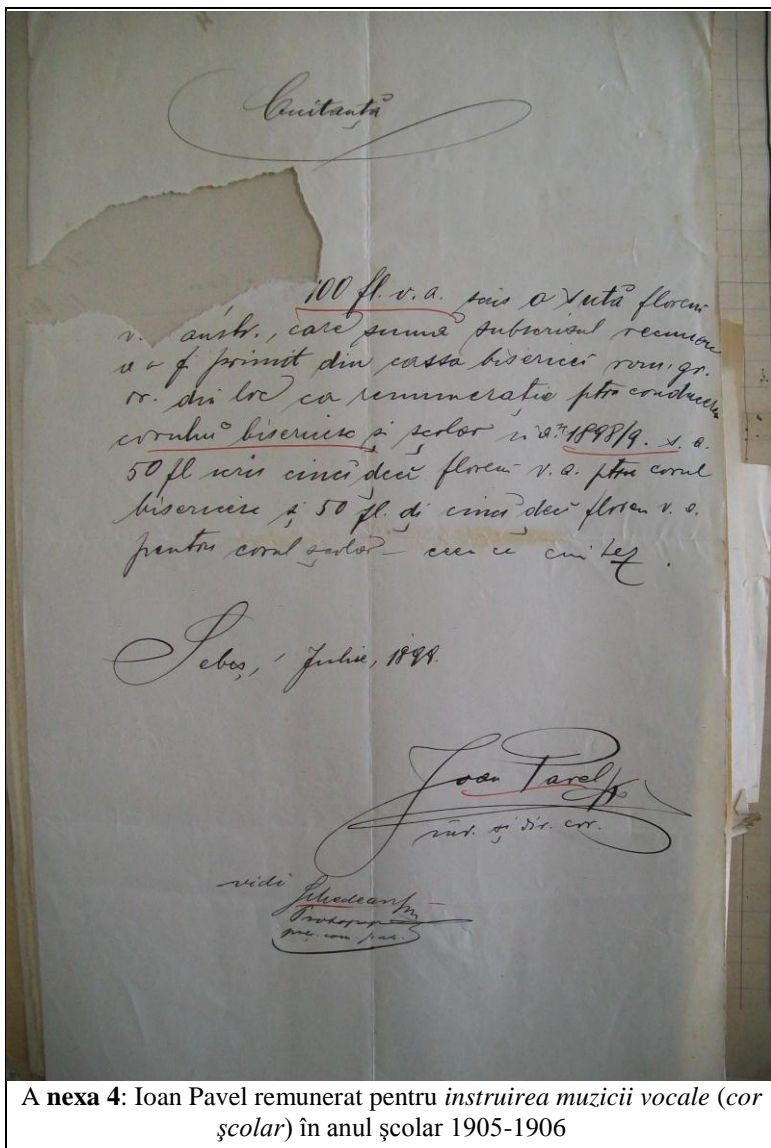 Cuitanță
100 fl. v. a. scris o sută floreni
v. austr., care sumă subscrisul recunosc
a o fi primit din cassa bisericei rom. gr.
or. din loc ca remunerație ptru conducerea
corului bisericesc și școlar 1898/9. s. a.
50 fl scris cinci deci floreni v. a. ptru corul
bisericesc și 50 fl. di cinci deci floreni v. a.
pentru corul școlar – ceea ce cuitez.
Sebeș, Julie, 1898.
Ioan Pavel
înv. și dir. cor.
vidi
A nexa 4: Ioan Pavel remunerat pentru instruirea muzicii vocale (cor
şcolar) în anul şcolar 1905-1906